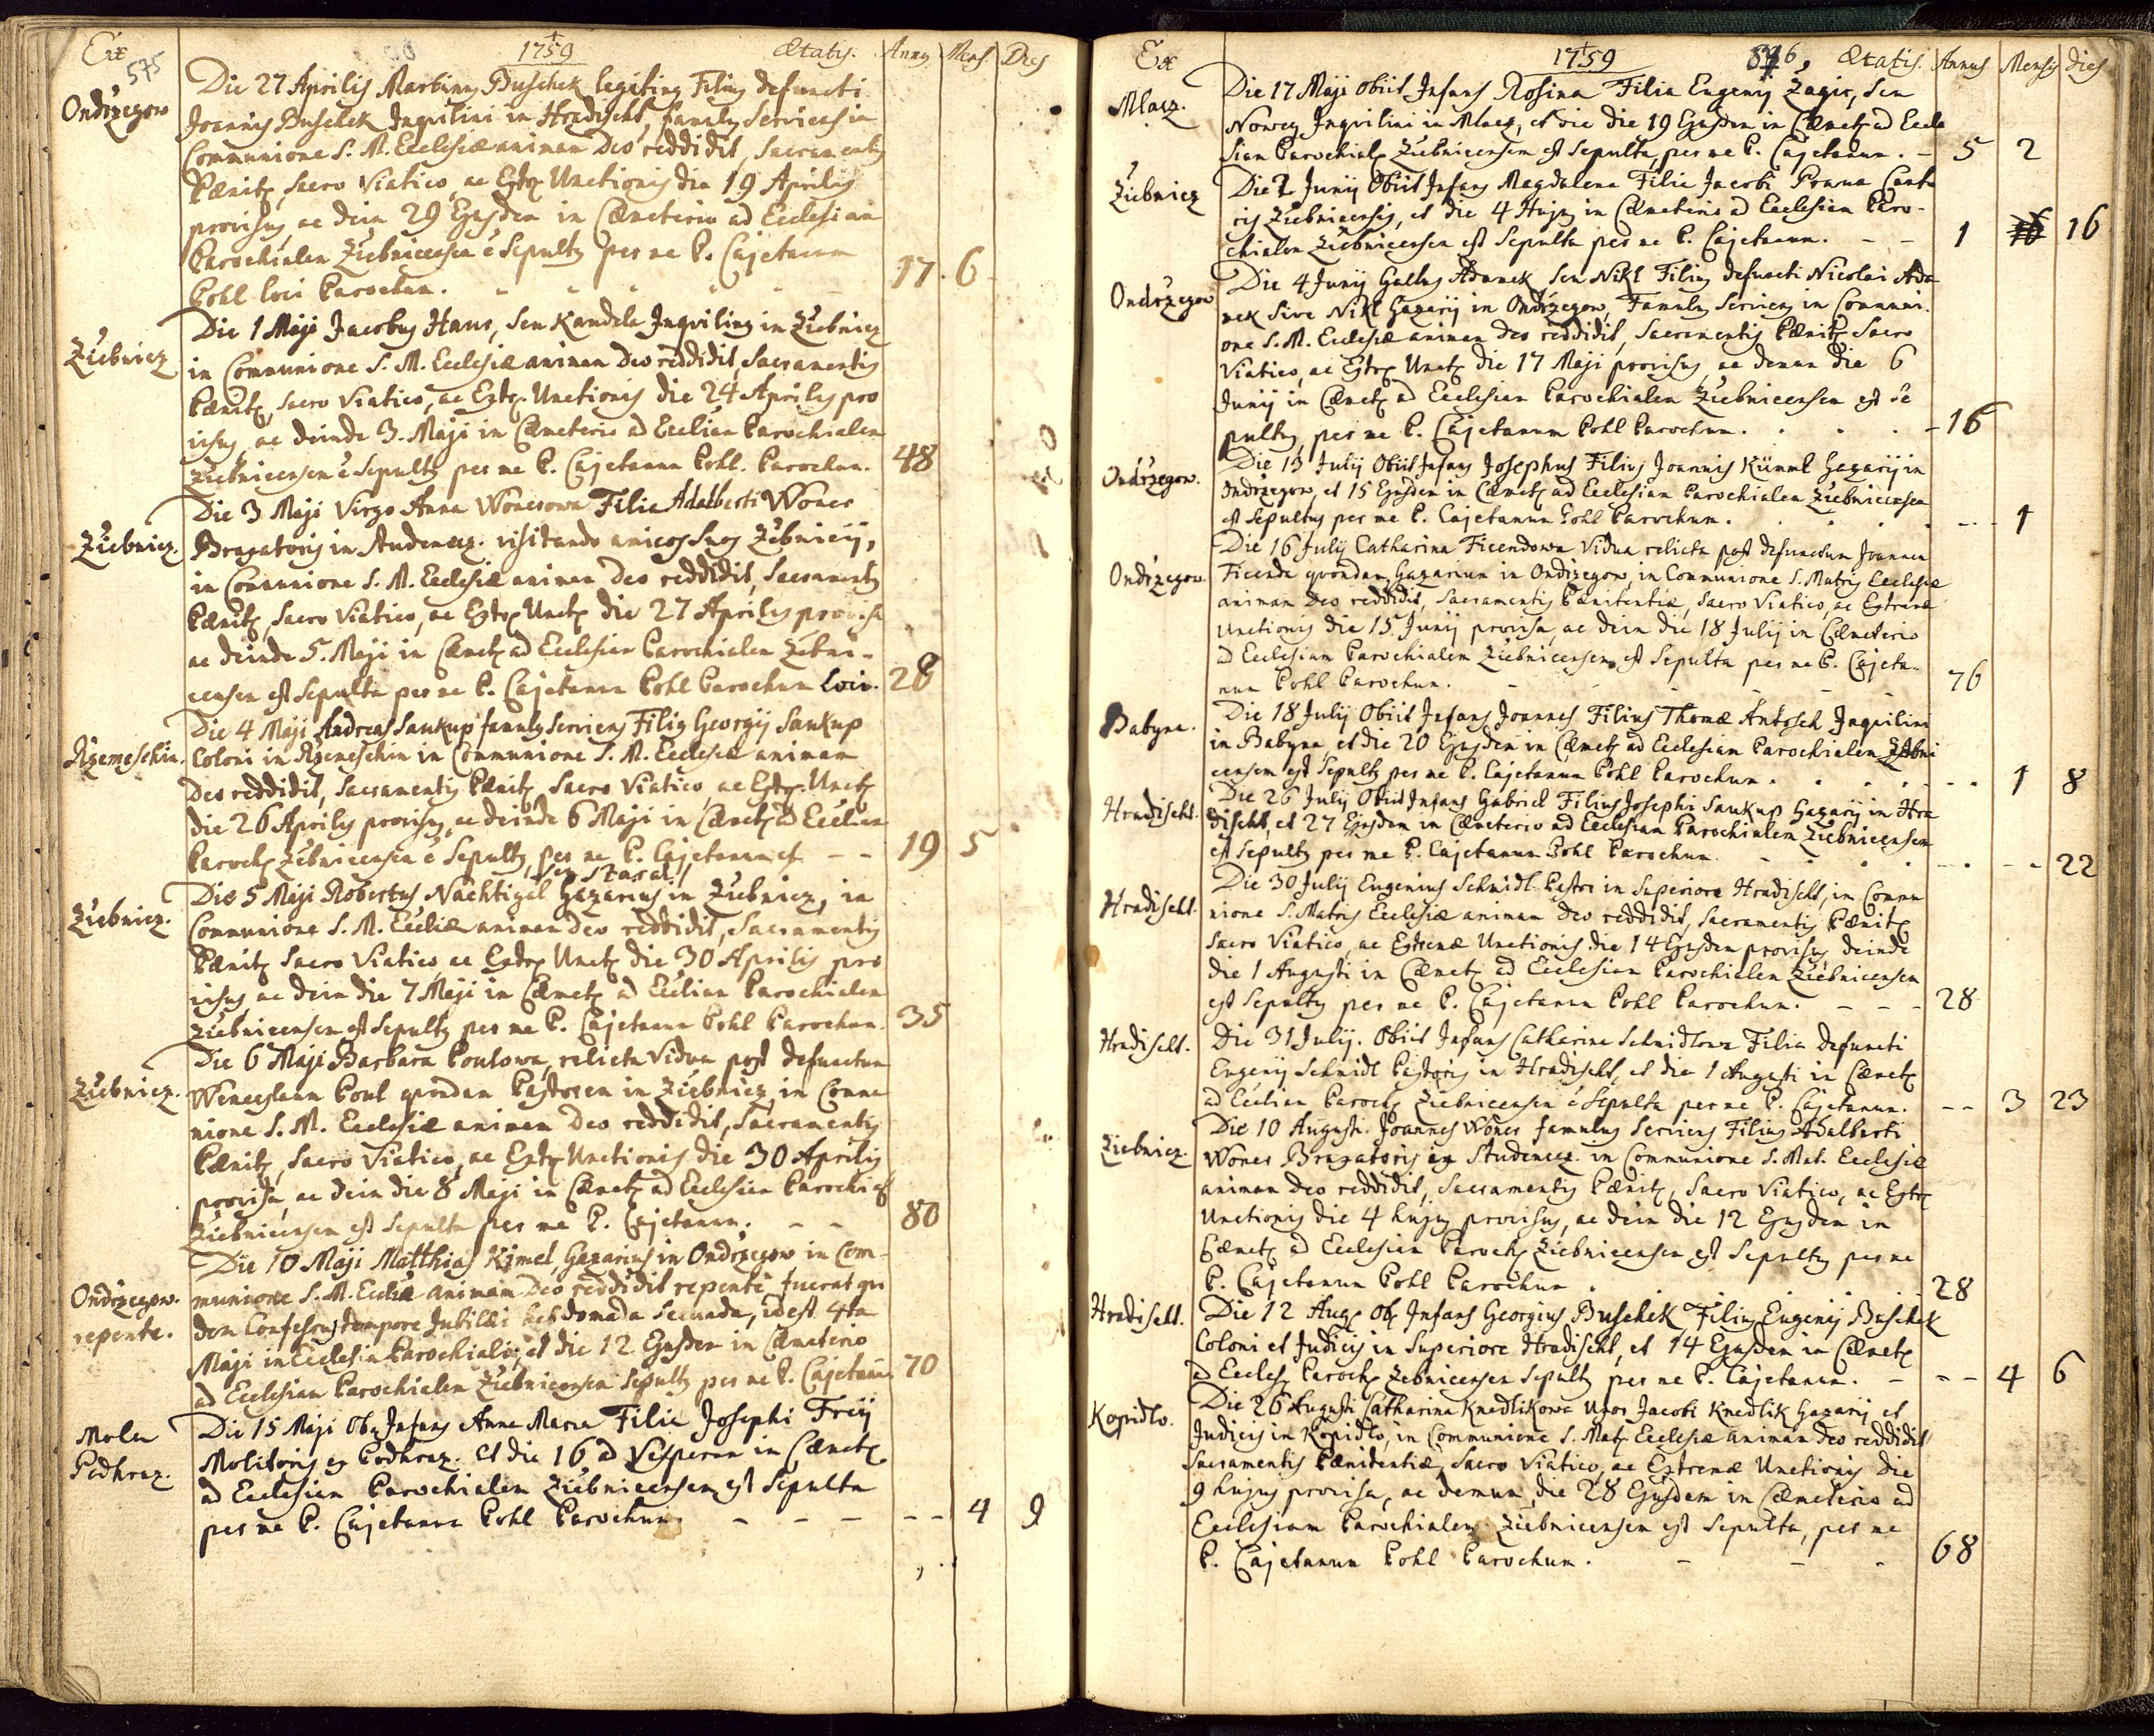 Ex 575 1759 Ætatis. Anny Mens Dies
Ondrzegow
Die 27 Aprilis Martiny Buschek legitimy Filiy defuncti
Joannis Buschek Inquilini in Hradischt, famuly serviens in
Communione S. M. Ecclesiæ animan Deo reddidit, Sacramentis
Pœnit, sacro Viatico, ac Extr Unctionis die 19 Aprilis
provisus ac dein 29 Ejusdem in Cœmeterio ad Ecclesian
Parochialem Ziebnicensem e sepulty per me P. Cajetanum
Pohl loci Parochum. 17. 6
Ziebnicz
Die 1 Maji Jacobus Hans, seu Kandela Inquiliny in Ziebnicz
in Communione S. M. Ecclesiæ animan Deo reddidit, Sacramentis
Pœnit, sacro Viatico, ac Extr Unctionis die 24 Aprilis pro
visus, ac deinde 3. Maji in Cœmeterio ad Ecclian Parochialem
Ziebnicensem e sepulty per me P. Cajetanum Pohl. Parochum. 48
Ziebnicz.
Die 3 Maji Virgo Anna Wonesowa Filia Adalberti Wones
Bragatoris in Studencz. visitando amicos suos Zebnicij,
in Communione S. M. Ecclesiæ animan Deo reddidit, Sacramentis
Pœnit, sacro Viatico, ac Extr Unct die 27 Aprilis provisa
ac deinde 5. Maji in Cœmet ad Ecclesian Parochialem Zebni-
censem est sepulta per me P. Cajetanum Pohl Parochum loci. 28
Rzemeschin.
Die 4 Maji Andreas Saukup famuly serviens Filiy Georgij Saukup
Coloni in Rzemeschin in Communione S. M. Ecclesiæ animam
Deo reddidit, Sacramentis Pœnit, Sacro Viatico, ac Extr. Unct
die 26 Aprilis provisus, ac deinde 6 Maji in Cœmet ad Ecclian
Paroch Zebnicensem e sepulty, per me P. Cajetanum - - 19 5
Ziebnicz.
Die 5 Maji Robertus Nachtigal Gazarius in Ziebnicz, in
Communione S. M. Eccliæ animan Deo reddidit, Sacramentis
Pœnit, Sacro Viatico, ac Extr Unct die 30 Aprilis pro
visus ac dein die 7 Maji in Cœmet ad Ecclian Parochialem
Ziebnicensem est sepulty per me P. Cajetanum Pohl Parochum. 35
Ziebnicz.
Die 6 Maji Barbara Poulowa, relicta Vidua post defunctum
Wenceslaum Poul quondam Pastorem in Ziebnicz, in Commu
nione S. M. Ecclesiæ animan Deo reddidit, Sacramentis
Pœnit, sacro Viatico, ac Extr Unctionis die 30 Aprilis
provisa, ac dein die 8 Maji in Cœmet ad Ecclesian Parochi
Ziebnicensem est sepulta per me P. Cajetanum. - - 80
Ondrzegow.
repente.
Die 10 Maji Matthias Kimel, Gazarius in Ondrzegow in Com-
munione S. M. Eccliæ animam Deo reddidit repente fuerat qui
dem Confessus tempore Jubilæi hebdomada secunda, id est 4ta
Maji in Ecclesia Parochiali, et die 12 Ejusdem in Cœmeterio
ad Ecclesiam Parochialem Ziebnicensem sepulty per me P. Cajetanum 70
Mola
Podhraz.
Die 15 Maji Ob Infans Anna Maria Filia Josephi Freij
Molitoris ex Podhraz. et die 16, ad Vesperam in Cœmet
ad Ecclesiam Parochialem Ziebnicensem est sepulta
per me P. Cajetanum Pohl Parochum. - - - - - 4 9
Ex 1759 576 Ætatis. Annus Mensis dies
Mlacz.
Die 17 Maji obiit Infans Rosina Filia Eugenij Zagic, seu
Nowey Inquilini in Mlacz, et die 19 Ejusdem in Cœmet ad Eccle
siam Parochial Ziebnicensem est sepulta, per me P. Cajetanum. - 5 2
Ziebnicz
Die 2 Junij Obiit Infans Magdalena Filia Jacobi Cant
ris Ziebnicensis, et die 4 Hujus in Cœmeterio ad Ecclesiam Paro-
chialem Ziebnicensem est sepulta per me P. Cajetanum. - - 1 16
Ondrzegow
Die 4 Junij Gallus Adamek seu Nikl Filiy defuncti Nicolai Ada
mek sive Nikl Gazarij in Ondrzegow, Famuly serviens in Communi.
one S. M. Ecclesiæ animan Deo reddidit, Sacramentis Pœnit Sacro
Viatico, ac Extr Unct die 17 Maji provisus, ac demum die 6
Junij in Cœmet ad Ecclesiam Parochialem Ziebnicensem est se
pultus, per me P. Cajetanum Pohl Parochum. - 16
Ondrzegow.
Die 13 Julij Obiit Infans Josephus Filius Joannis Kümml Gazarij in
Ondrzegow, et 15 Ejusdem in Cœmet ad Ecclesiam Parochialem Ziebnicensem
est sepultus per me P. Cajetanum Pohl Parochum. - - - 1
Ondrzegow.
Die 16 July Catharina Ficendowa Vidua relicta post defunctum Joannem
Ficenda quondam Gazarium in Ondrzegow, in Communione S. Matris Ecclesiæ
animan Deo reddidit, Sacramentis Pœnitentiæ, sacro Viatico, ac Extremæ
Unctionis die 15 Junij provisa, ac dein die 18 Julij in Cœmeterio
ad Ecclesiam Parochialem Ziebnicensem est sepulta per me P. Cajeta-
num Pohl Parochum. - - 76
Babyna.
Die 18 July Obiit Infans Joannes Filius Thomæ Antosch Inquilini
in Babyna, et die 20 Ejusdem in Cœmet ad Ecclesiam Parochialem Zebni
censem est sepulty per me P. Cajetanum Pohl Parochum. - - 1 8
Hradischt.
Die 26 July Obiit Infans Gabriel Filius Josephi Saukup Gazarij in Hra
discht, et 27 Ejusdem in Cœmeterio ad Ecclesiam Parochialem Ziebnicensem
est sepulty per me P. Cajetanum Pohl Parochum. - - - 22
Hradischt.
Die 30 July Eugenius Schmidl Pastor in Superiore Hradischt, in Commu
nione S. Matris Ecclesiæ animam Deo reddidit, Sacramentis Pœnit
sacro Viatico, ac Extremæ Unctionis die 14 Ejusdem provisus, deinde
die 1 Augusti in Cœmet ad Ecclesiam Parochialem Ziebnicensem
est sepulty per me P. Cajetanum Pohl Parochum. - - - 28
Hradischt.
Die 31 July. Obiit Infans Catharina Schmidlowa Filia defuncti
Eugenij Schmidl Pastoris in Hradischt, et die 1 Augusti in Cœmet
ad Ecclian Paroch Ziebnicensem e sepulta per me P. Cajetanum. - - 3 23
Ziebnicz.
Die 10 August. Joannes Wones famulus serviens Filius Adalberti
Wones Bragatoris ex Studencz. in Communione S. Mat. Ecclesiæ
animan Deo reddidit, Sacramentis Pœnit, Sacro Viatico, ac Extr
Unctionis die 4 hujus provisus, ac dein die 12 Ejusdem in
Cœmet ad Ecclesiam Paroch Ziebnicensem est sepulty per me
P. Cajetanum Pohl Parochum. 28
Hradischt.
Die 12 Aug Ob Infans Georgius Buschek Filius Eugenij Buschek
Coloni et Judicis in Superiore Hradischt, et 14 Ejusdem in Cœmet
ad Ecclesi Paroch Zebnicensem sepulty per me P. Cajetanum. - - - 4 6
Kopidlo.
Die 26 Augusti Catharina Knedlikowa Uxor Jacobi Knedlik Gazarij et
Judicis in Kopidlo, in Communione S. Mat Ecclesiæ animan Deo reddidit
Sacramentis Pœnitentiæ, Sacro Viatico, ac Extremæ Unctionis die
9 hujus provisa, ac demum, die 28 Ejusdem in Cœmeterio ad
Ecclesiam Parochialem Ziebnicensem est sepulta, per me
P. Cajetanum Pohl Parochum. - - - 68